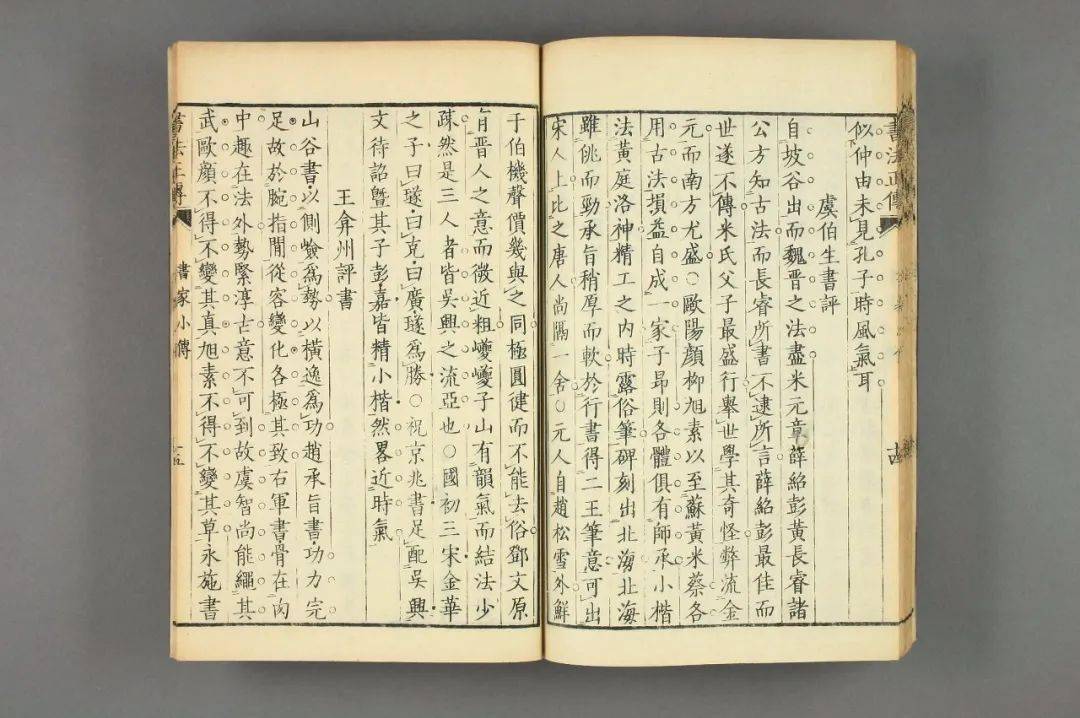 書法正傳
似仲由未見孔子時風氣耳
虞伯生書評
自坡谷出而魏晉之法盡米元章薛紹彭黃長睿諸
公方知古法而長睿所書不逮所言薛紹彭最佳而
世遂不傳米氏父子最盛行舉世學其奇怪弊流金
元而南方尤盛○歐陽顏柳旭素以至蘇黃米蔡各
用古法損益自成一家子昂則各體俱有師承小楷
法黃庭洛神精工之內時露俗筆碑刻出北海北海
雖佻而勁承旨稍厚而軟於行書得二王筆意可出
宋人上比之唐人尚隔一舍○元人自趙松雪外鮮
于伯機聲價幾與之同極圓健而不能去俗鄧文原
有晉人之意而微近粗巎巎子山有韻氣而結法少
疎然是三人者皆吳興之流亞也○國初三宋金華
之子曰璲曰克曰廣璲爲勝○祝京兆書足配吳興
文待詔曁其子彭嘉皆精小楷然畧近時氣
王弇州評書
山谷書以側嶮爲勢以橫逸爲功趙承旨書功力完
足故於腕指間從容變化各極其致右軍書骨在肉
中趣在法外勢緊淳古意不可到故虞智尚能繩其
武歐顏不得不變其真旭素不得不變其草永施書
書法正傳
書家小傳
十五